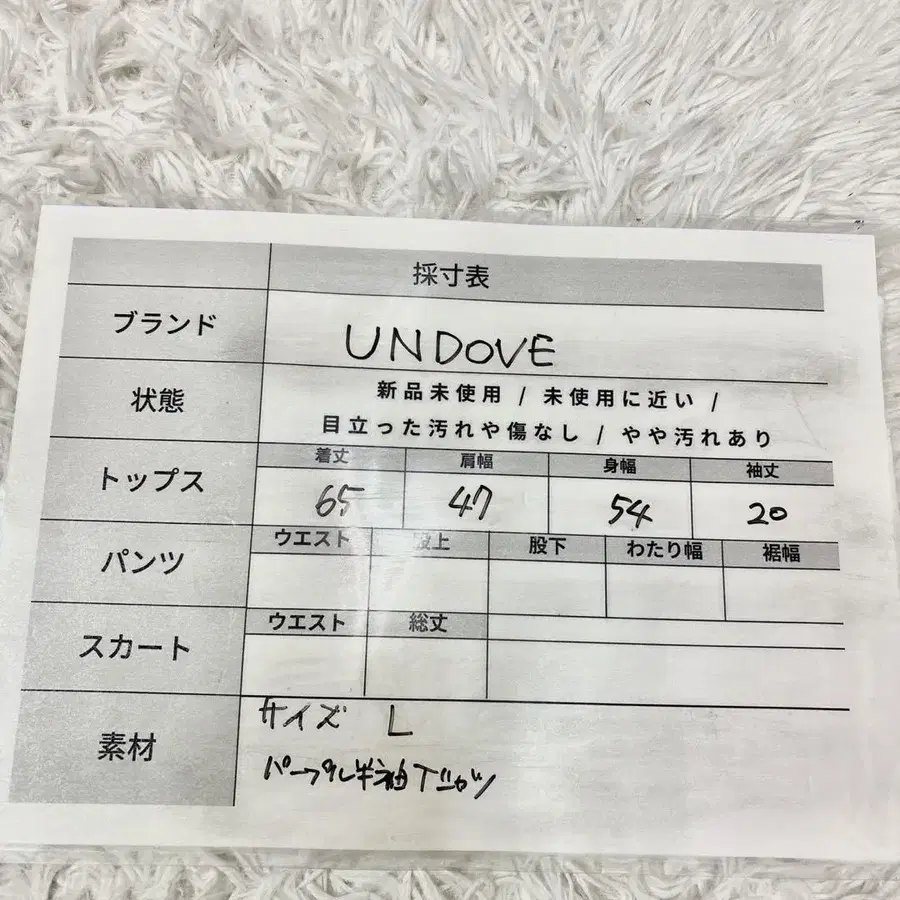 採寸表
ブランド UNDOVE
状態 新品未使用 / 未使用に近い /
目立った汚れや傷なし / やや汚れあり
トップス 着丈 肩幅 身幅 袖丈
65 47 54 20
パンツ ウエスト 股上 股下 わたり幅 裾幅
スカート ウエスト 総丈
素材 サイズ L
パープル半袖Tシャツ